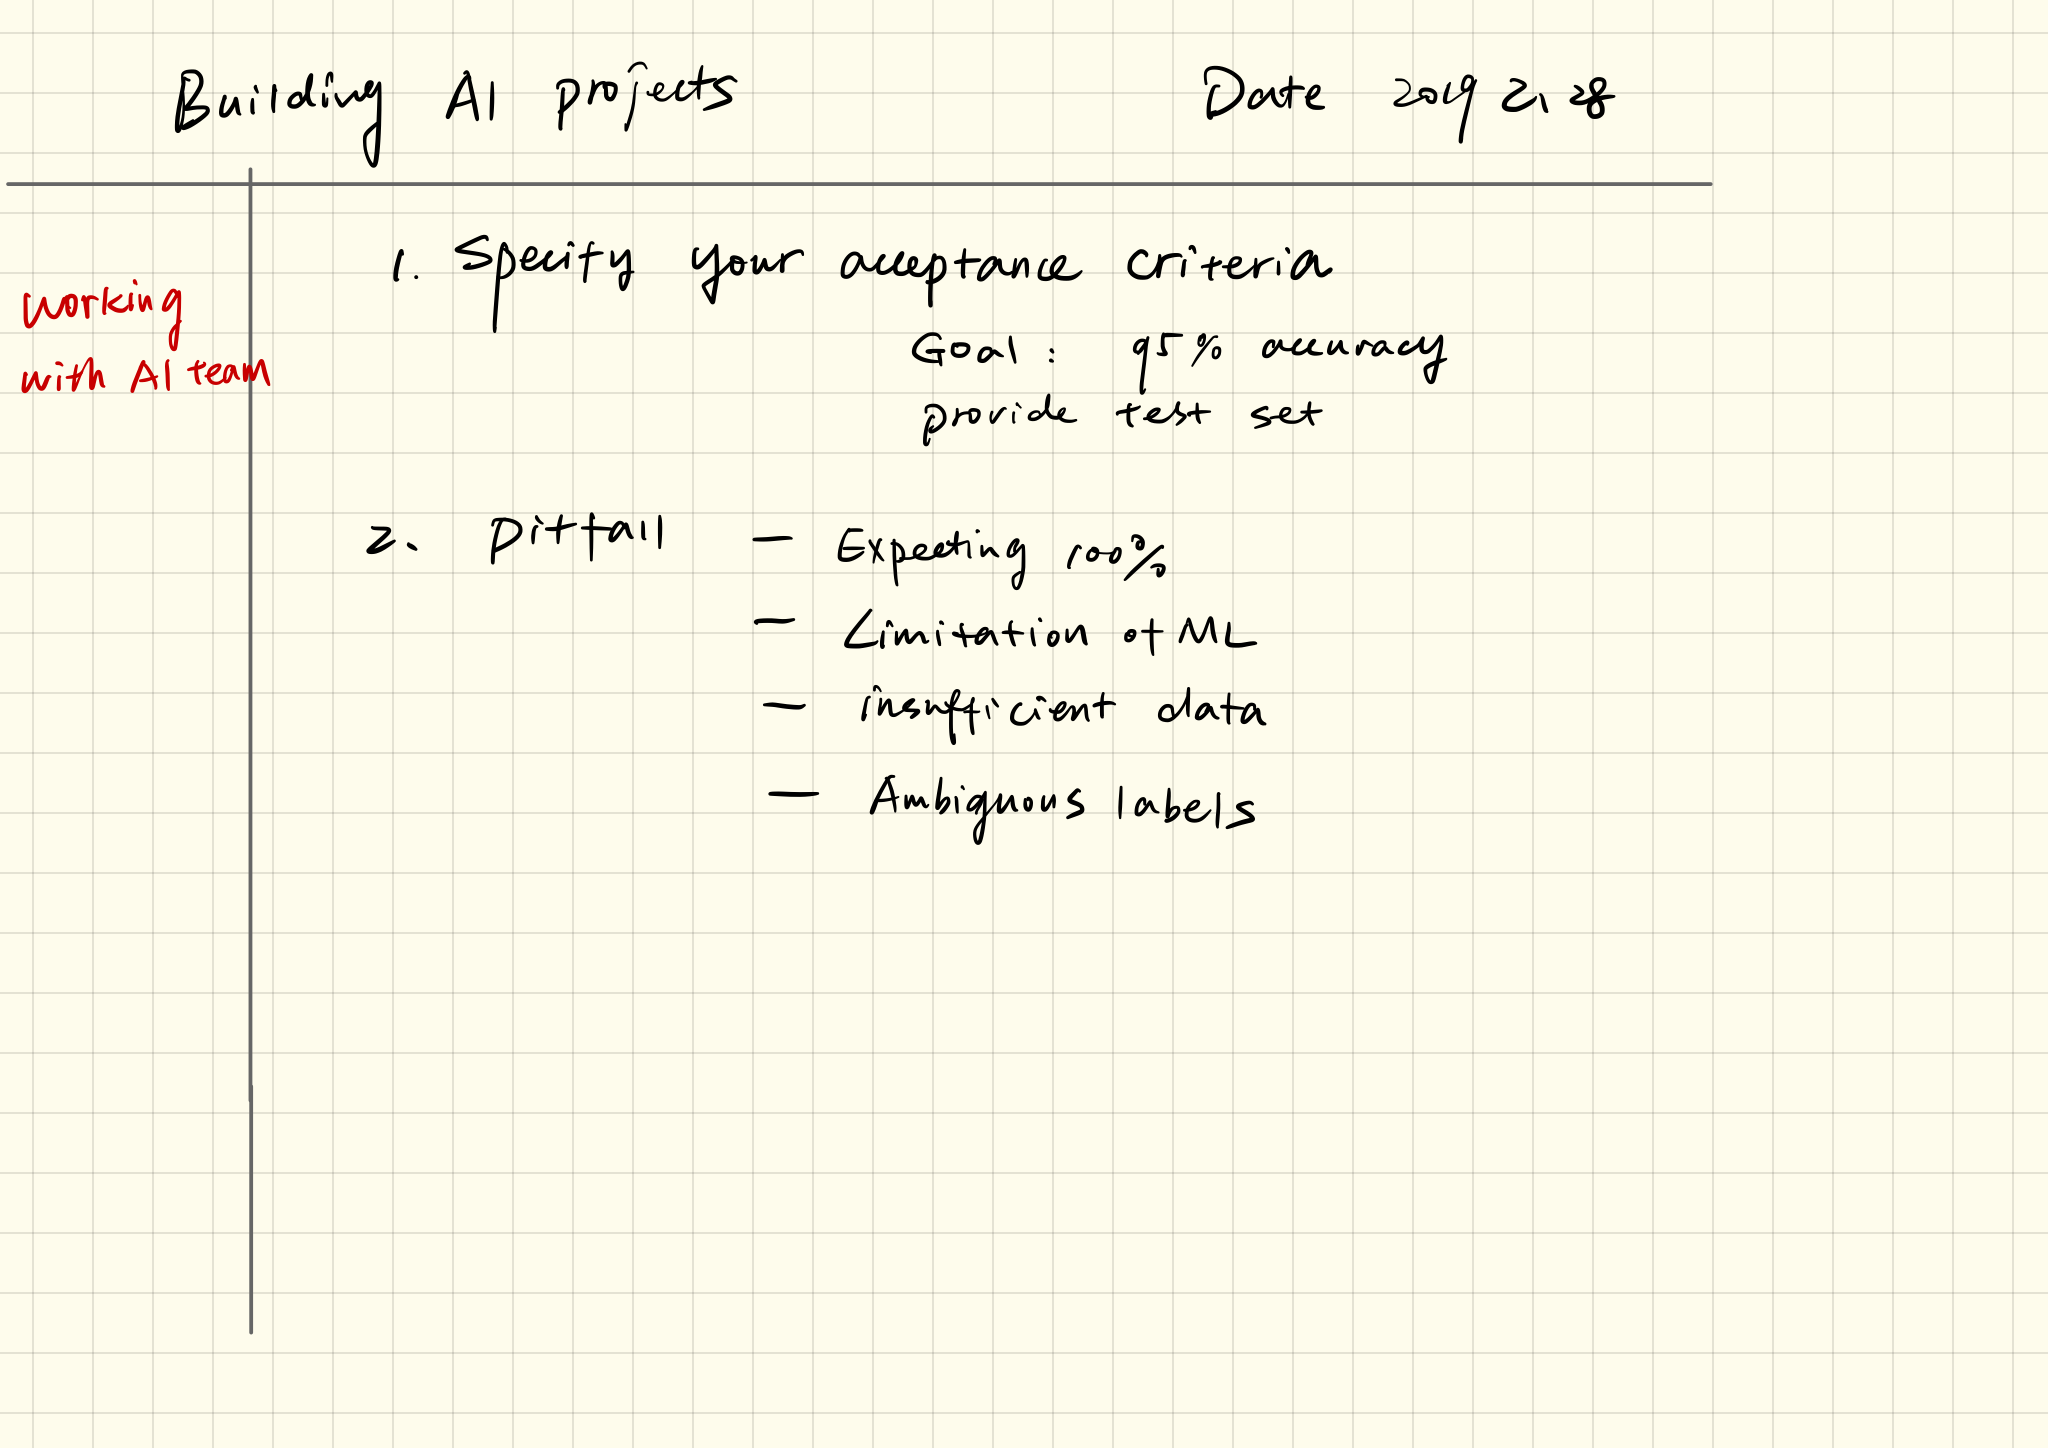 Building AI projects Date 2019 2, 28
working
with AI team
1. Specify your acceptance criteria
Goal: 95% accuracy
provide test set
2. pitfall — Expecting 100%
— Limitation of ML
— insufficient data
— Ambiguous labels